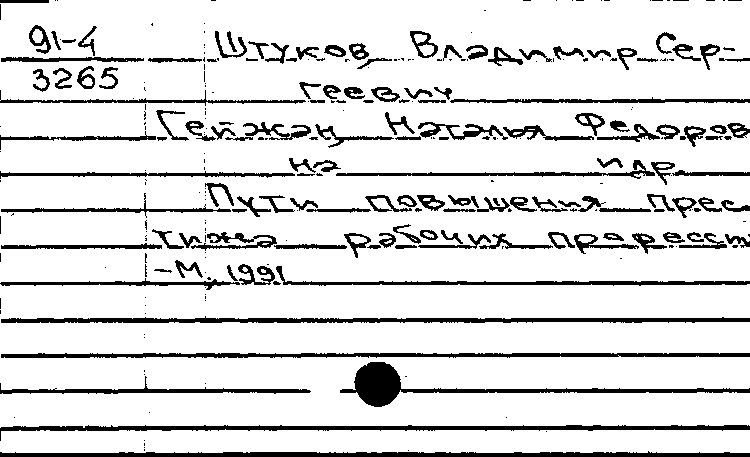 91-4 Штуков, Владимир Сер-
3265 геевич
Гейжан, Наталья Федоров
на и др.
Пути повышения прес-
тижа рабочих професси
-М., 1991